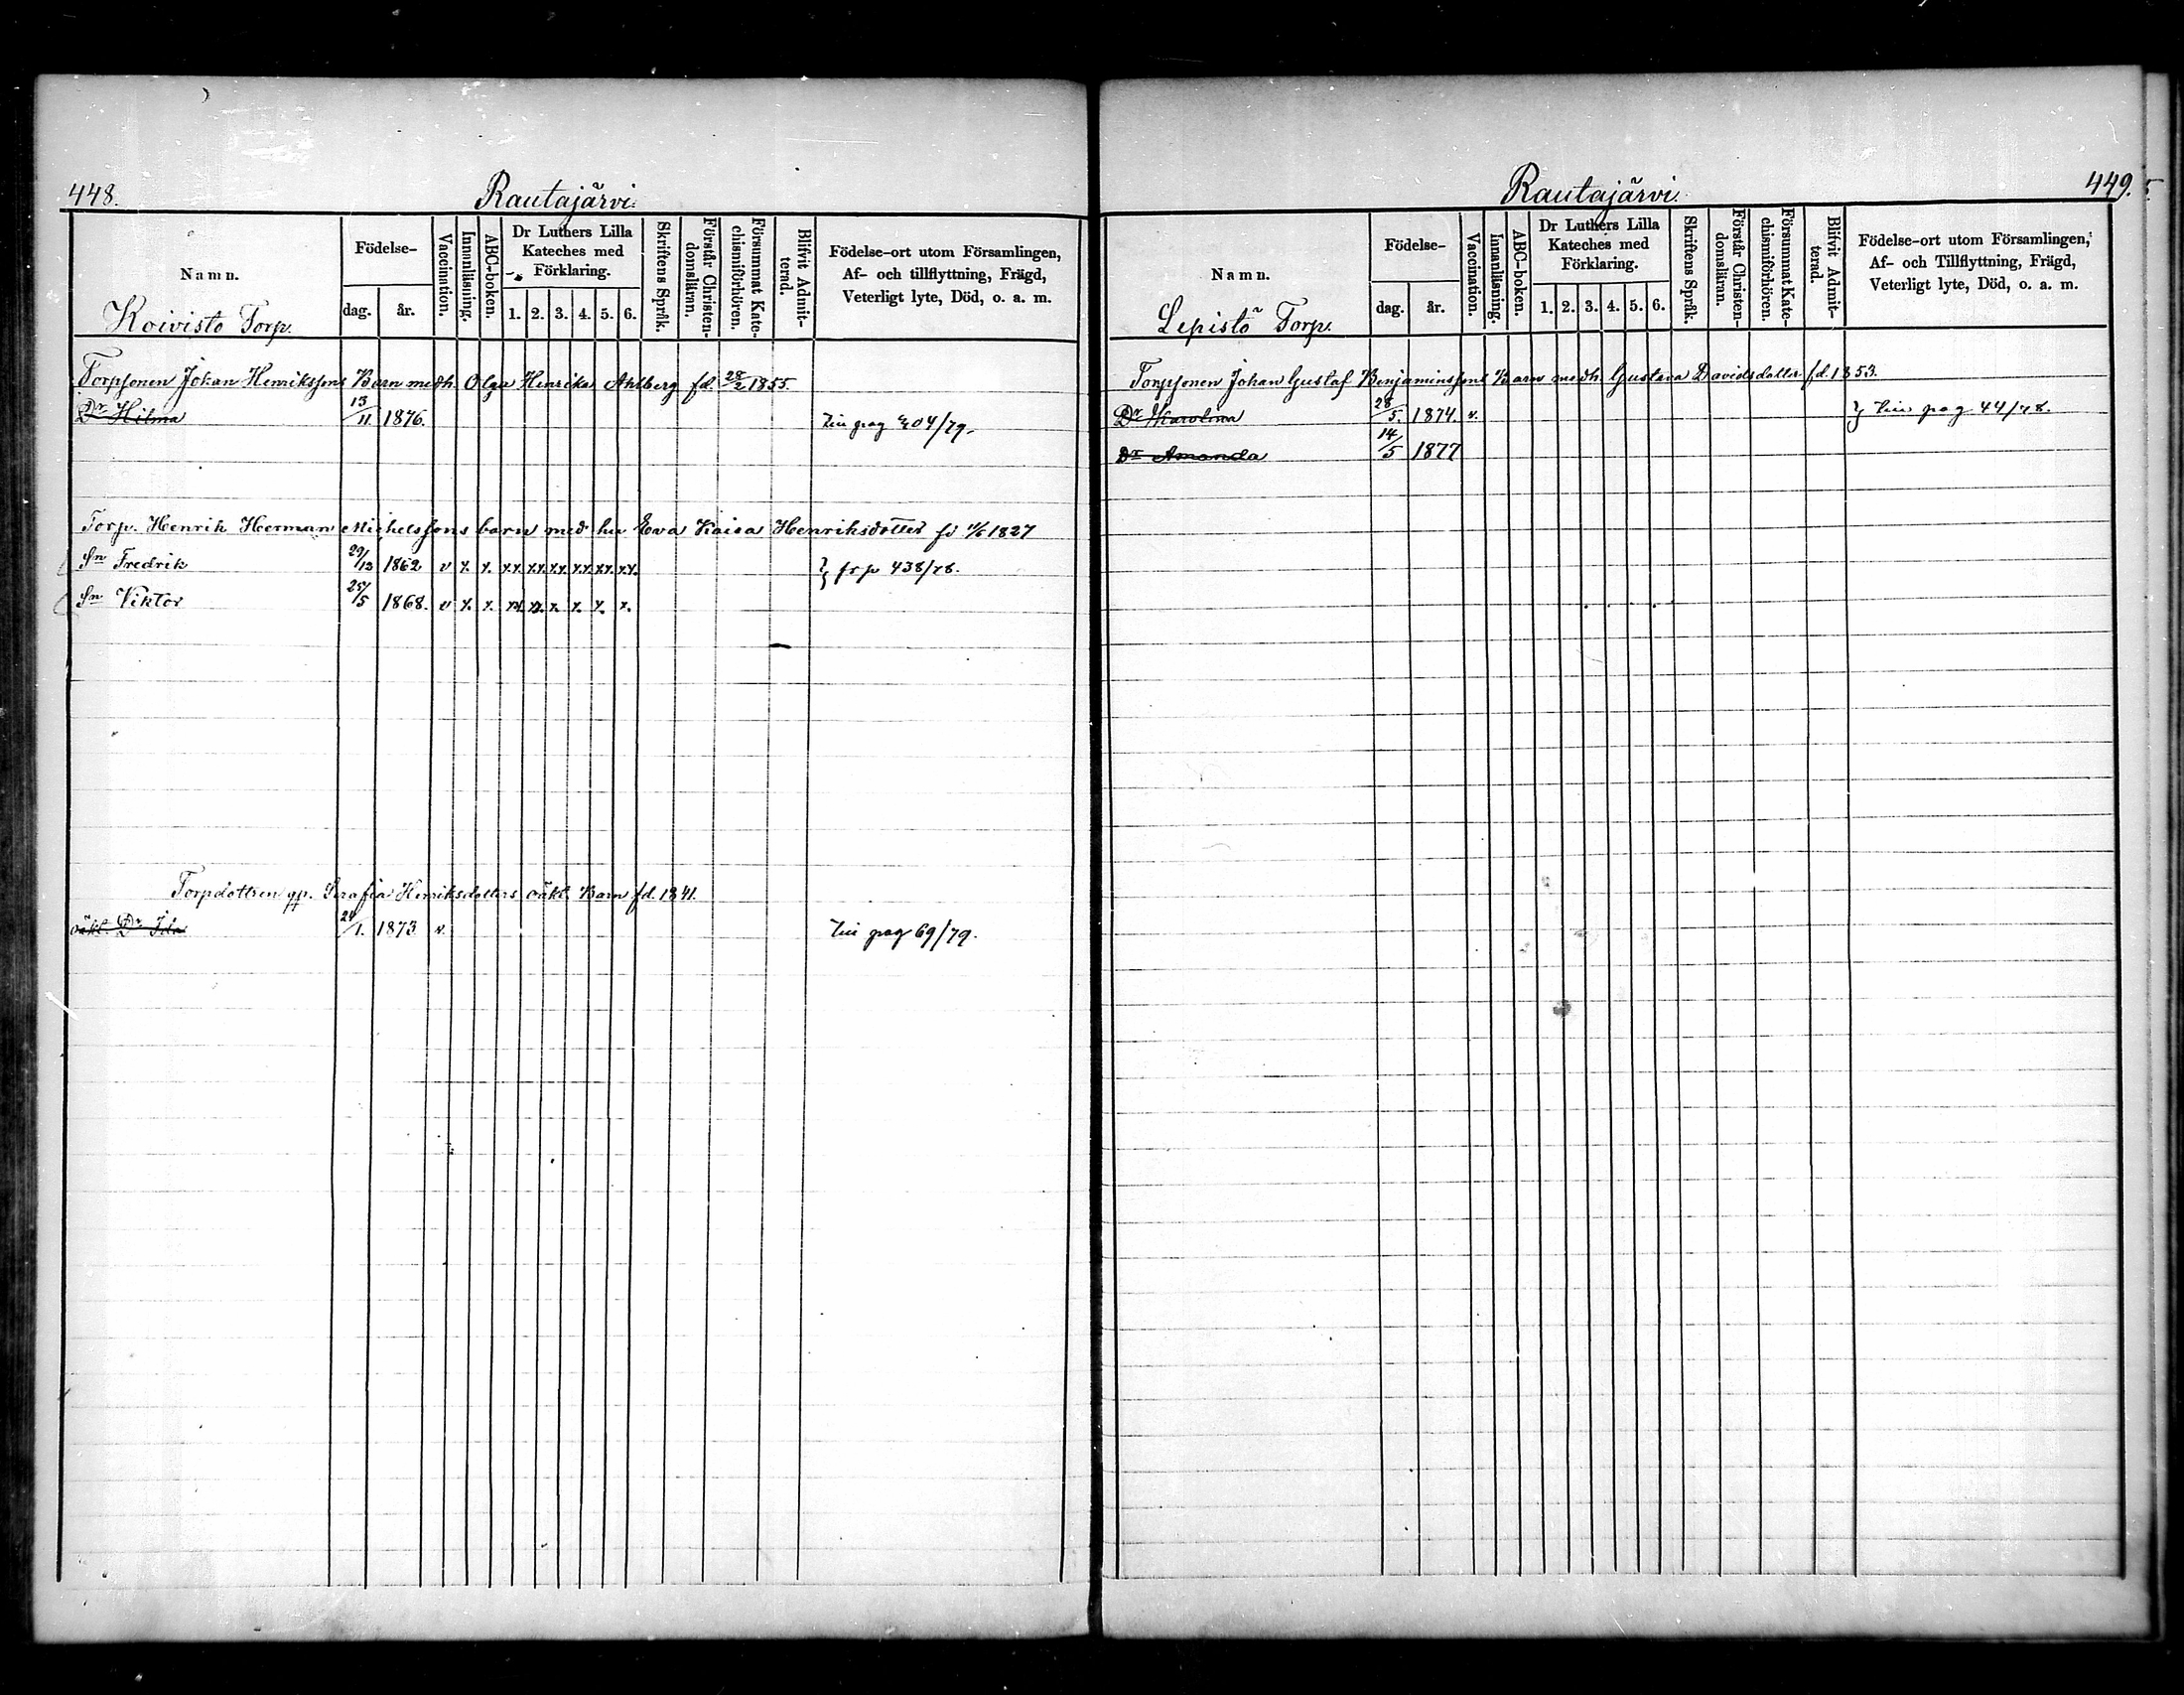 448.
Rautajärvi.
Namn.
Koivisto Torp.
Födelse-
dag.
år.
Vaccination.
Innanläsning.
ABC-boken.
Dr Luthers Lilla
Kateches med
Förklaring.
1. 2. 3. 4. 5. 6.
Skriftens Språk.
Förstår Christen-
domsläran.
Försummat Kate-
chismiförhören.
Blifvit Admit-
terad.
Födelse-ort utom Församlingen,
Af- och tillflyttning, Frägd,
Veterligt lyte, Död, o. a. m.
Torpsonen Johan Henrikssons Barn medh. Olga Henrika Ahlberg fd. 28/2 1855
Dr Hilma 13/11 1876. pag 404/79.
Torp. Henrik Herman Michelssons barn med hu Eva Kaisa Henriksdotter 1827
Sn Fredrik 29/12 1862 v x. x. xx. xx. xx. xx. xx. xx. fr p 438/78.
Sn Viktor 25/5 1868. v x. x. xx. xx. x. x. x. x.
Torpdottren Serafia Henriksdotters oäkt. Barn fd. 1841.
oäkt. Dr Ida 24/1. 1873 v. pag 69/79.
449.
Rautajärvi.
Namn.
Lepistö Torp.
Födelse-
dag.
år.
Vaccination.
Innanläsning.
ABC-boken.
Dr Luthers Lilla
Kateches med
Förklaring.
1. 2. 3. 4. 5. 6.
Skriftens Språk.
Förstår Christen-
domsläran.
Försummat Kate-
chismiförhören.
Blifvit Admit-
terad.
Födelse-ort utom Församlingen,
Af- och Tillflyttning, Frägd,
Veterligt lyte, Död, o. a. m.
Torpsonen Johan Gustaf Benjaminssons Barn medh. Gustava Davidsdotter fd. 1853.
Dr Karolina 28/5. 1874. v. pag 44/78.
Dr Amanda 14/5 1877